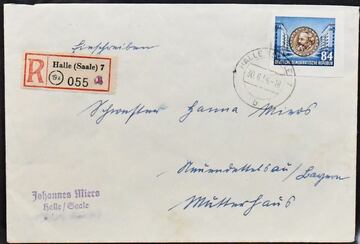 Einschreiben
R
Halle (Saale) 7
055
84
DEUTSCHE DEMOKRATISCHE REPUBLIK
HALLE
Schwester Hanna Miers
Neuendettelsau/Bayern
Mutterhaus
Johannes Miers
Halle/Saale